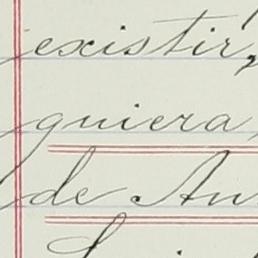 existir,
quiera
de An